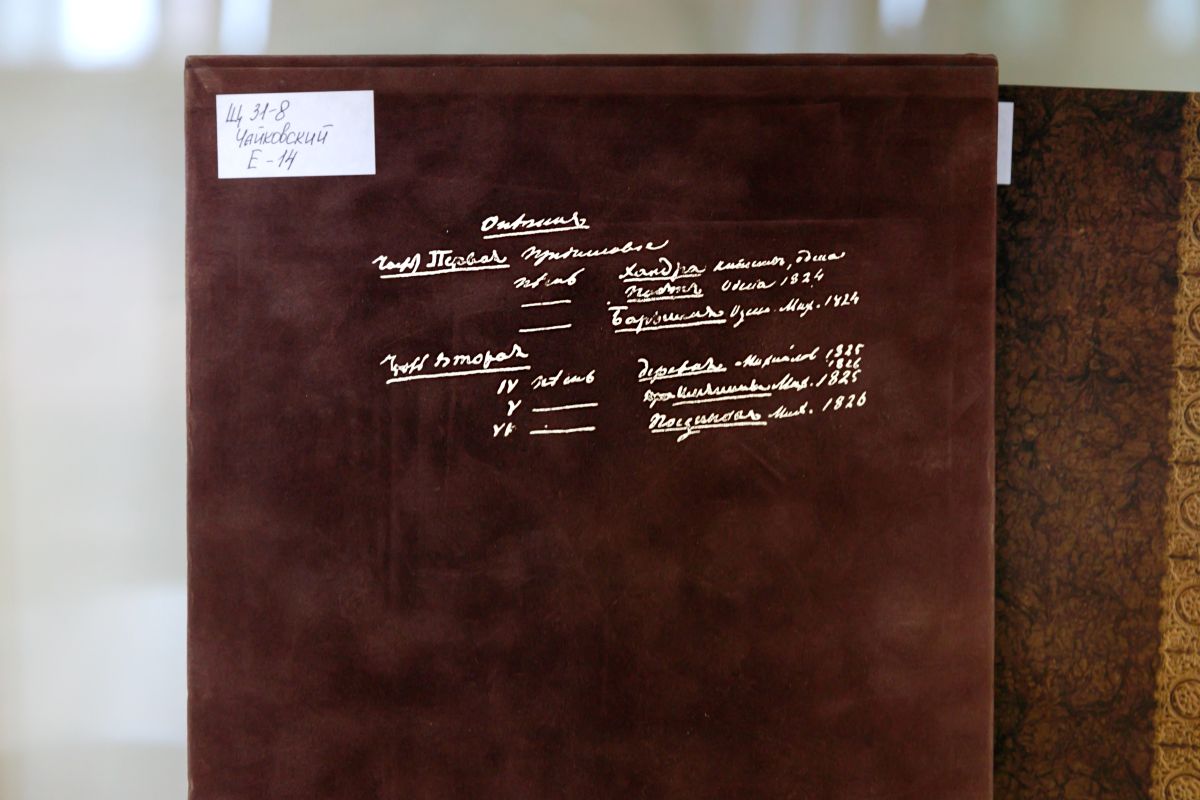 Щ 31-8
Чайковский
Е-14
Онѣгинъ
Часть Первая Предисловіе
пѣснь Хандра Кишиневъ, Одесса
—— Поэтъ Одесса 1824
—— Барышня Одесса. Мих. 1824
Часть Вторая
IV пѣснь Деревня Михайлов. 1825
1826
V —— Имянины Мих. 1825
VI —— Поединокъ Мих. 1826